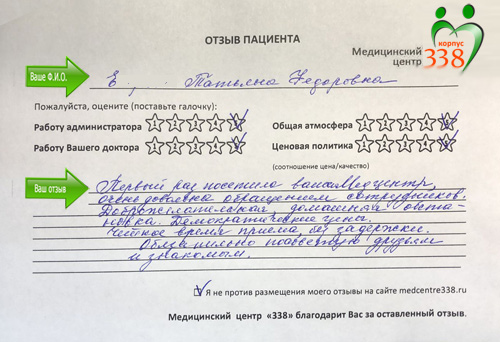 ОТЗЫВ ПАЦИЕНТА
Медицинский центр
корпус 338
Ваше Ф.И.О.
Е, Татьяна Федоровна
Пожалуйста, оцените (поставьте галочку):
Работу администратора 1 2 3 4 5
Общая атмосфера 1 2 3 4 5
Работу Вашего доктора 1 2 3 4 5
Ценовая политика 1 2 3 4 5
(соотношение цена/качество)
Ваш отзыв
Первый раз посетила ваш Медцентр,
очень довольна обращением сотрудников.
Доброжелательная домашняя обста-
новка. Демократические цены.
Четкое время приема, без задержки.
Обязательно посоветую друзьям
и знакомым.
Я не против размещения моего отзывы на сайте medcentre338.ru
Медицинский центр «338» благодарит Вас за оставленный отзыв.